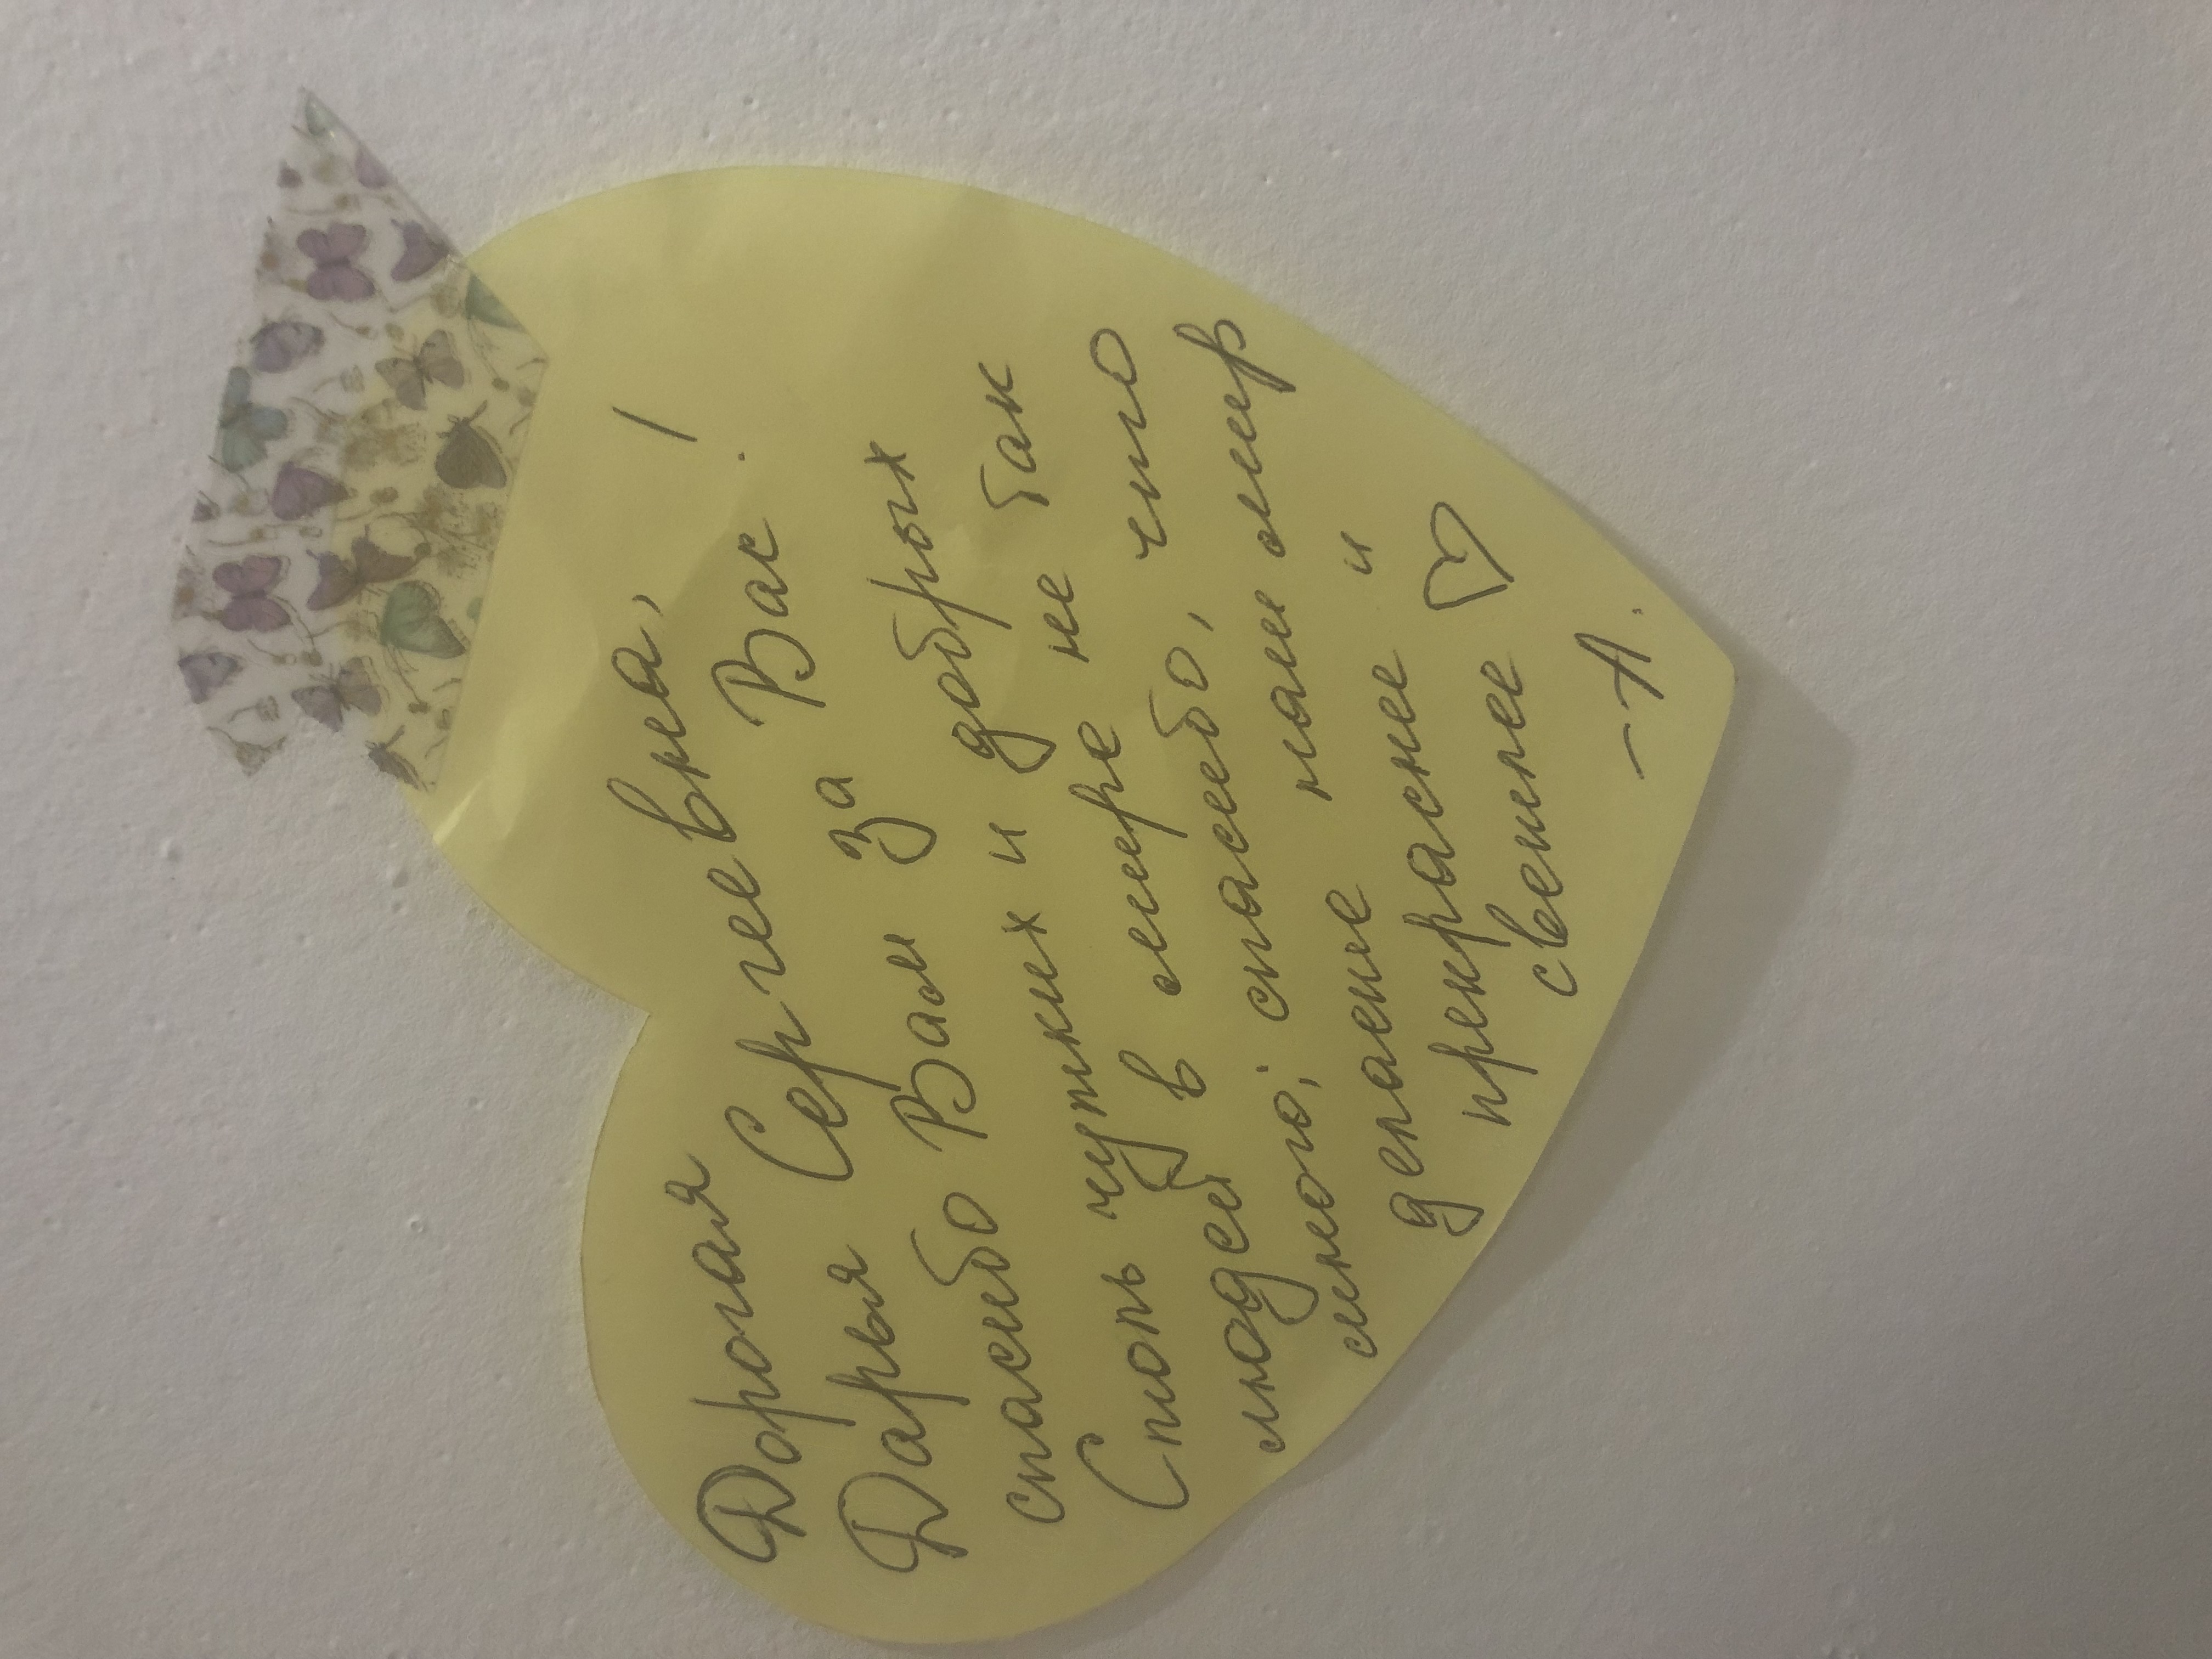 Дорогая
Дарья Сергеевна,
спасибо Вам за Вас!
Столь чутких и добрых
людей в мире не так
много, спасибо, что
делаете наш мир
прекраснее и
светлее ♡
– А.